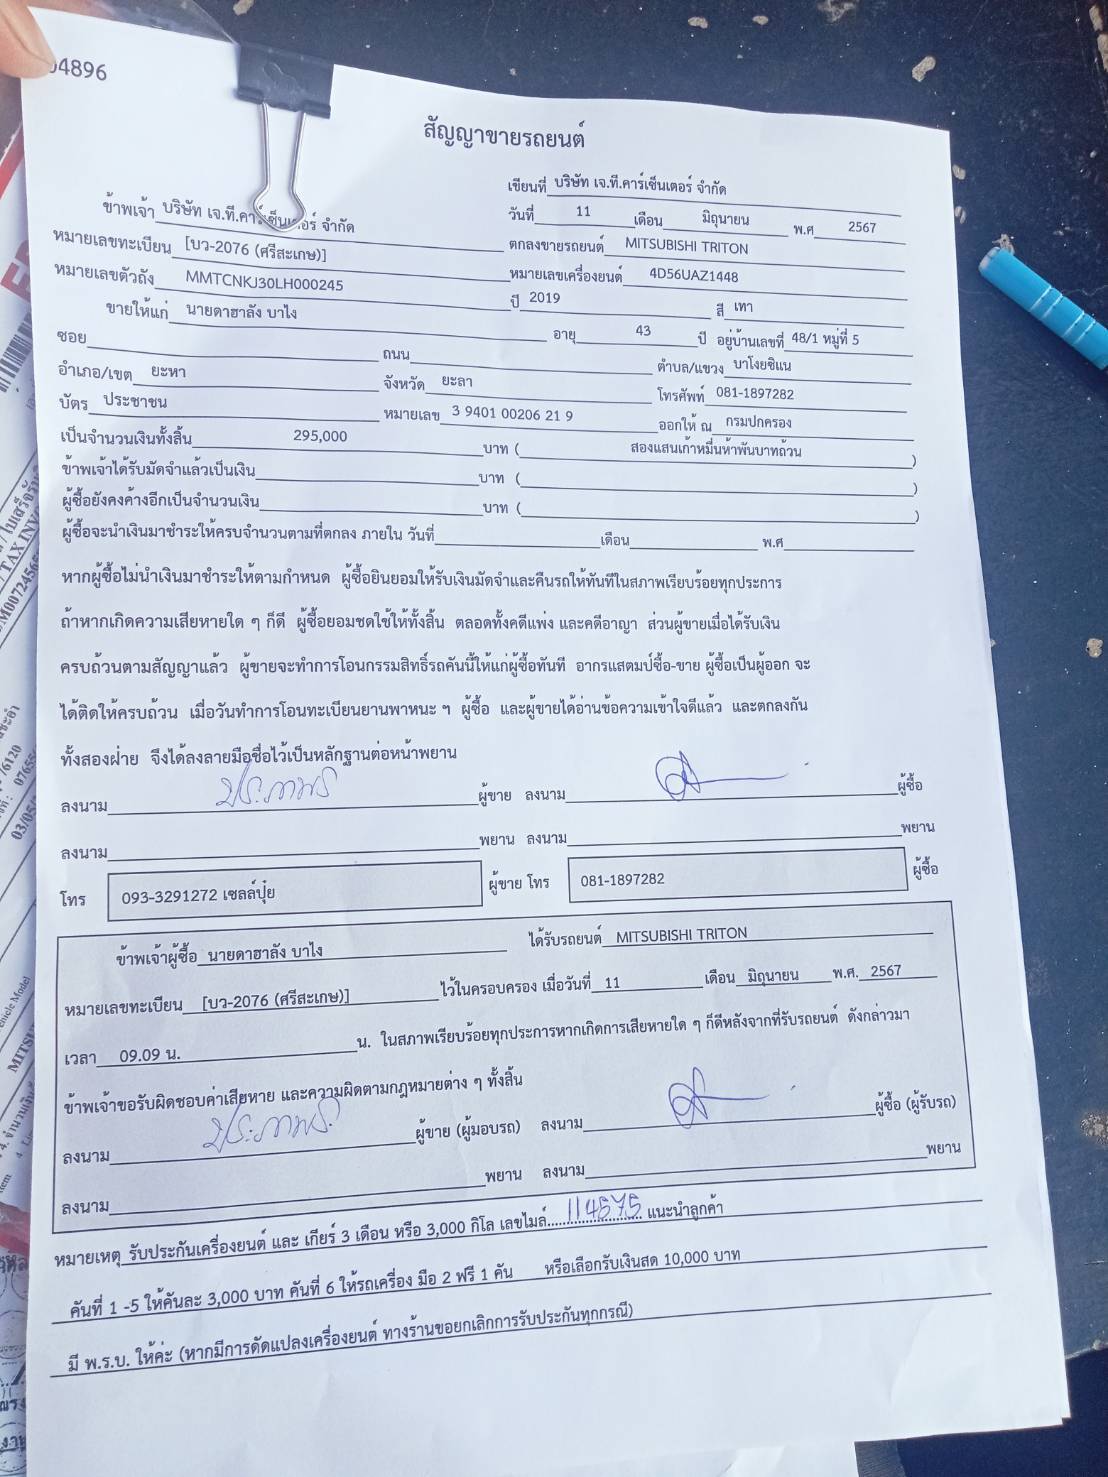 04896
สัญญาขายรถยนต์
เขียนที่ บริษัท เจ.ที.คาร์เซ็นเตอร์ จำกัด
ข้าพเจ้า บริษัท เจ.ที.คาร์เซ็นเตอร์ จำกัด วันที่ 11 เดือน มิถุนายน พ.ศ 2567
หมายเลขทะเบียน [บว-2076 (ศรีสะเกษ)] ตกลงขายรถยนต์ MITSUBISHI TRITON
หมายเลขตัวถัง MMTCNKJ30LH000245 หมายเลขเครื่องยนต์ 4D56UAZ1448
ขายให้แก่ นายดาฮาลัง บาไง ปี 2019 สี เทา
ซอย อายุ 43 ปี อยู่บ้านเลขที่ 48/1 หมู่ที่ 5
ถนน ตำบล/แขวง บาโงยซิแน
อำเภอ/เขต ยะหา จังหวัด ยะลา โทรศัพท์ 081-1897282
บัตร ประชาชน หมายเลข 3 9401 00206 21 9 ออกให้ ณ กรมปกครอง
เป็นจำนวนเงินทั้งสิ้น 295,000 บาท ( สองแสนเก้าหมื่นห้าพันบาทถ้วน )
ข้าพเจ้าได้รับมัดจำแล้วเป็นเงิน บาท ( )
ผู้ซื้อยังคงค้างอีกเป็นจำนวนเงิน บาท ( )
ผู้ซื้อจะนำเงินมาชำระให้ครบจำนวนตามที่ตกลง ภายใน วันที่ เดือน พ.ศ
หากผู้ซื้อไม่นำเงินมาชำระให้ตามกำหนด ผู้ซื้อยินยอมให้รับเงินมัดจำและคืนรถให้ทันทีในสภาพเรียบร้อยทุกประการ
ถ้าหากเกิดความเสียหายใด ๆ ก็ดี ผู้ซื้อยอมชดใช้ให้ทั้งสิ้น ตลอดทั้งคดีแพ่ง และคดีอาญา ส่วนผู้ขายเมื่อได้รับเงิน
ครบถ้วนตามสัญญาแล้ว ผู้ขายจะทำการโอนกรรมสิทธิ์รถคันนี้ให้แก่ผู้ซื้อทันที อากรแสตมป์ซื้อ-ขาย ผู้ซื้อเป็นผู้ออก จะ
ได้ติดให้ครบถ้วน เมื่อวันทำการโอนทะเบียนยานพาหนะ ฯ ผู้ซื้อ และผู้ขายได้อ่านข้อความเข้าใจดีแล้ว และตกลงกัน
ทั้งสองฝ่าย จึงได้ลงลายมือชื่อไว้เป็นหลักฐานต่อหน้าพยาน
ลงนาม ประภาพร ผู้ขาย ลงนาม ผู้ซื้อ
ลงนาม พยาน ลงนาม พยาน
โทร 093-3291272 เซลล์ปุ๋ย ผู้ขาย โทร 081-1897282 ผู้ซื้อ
ข้าพเจ้าผู้ซื้อ นายดาฮาลัง บาไง ได้รับรถยนต์ MITSUBISHI TRITON
หมายเลขทะเบียน [บว-2076 (ศรีสะเกษ)] ไว้ในครอบครอง เมื่อวันที่ 11 เดือน มิถุนายน พ.ศ. 2567
เวลา 09.09 น. น. ในสภาพเรียบร้อยทุกประการหากเกิดการเสียหายใด ๆ ก็ดีหลังจากที่รับรถยนต์ ดังกล่าวมา
ข้าพเจ้าขอรับผิดชอบค่าเสียหาย และความผิดตามกฎหมายต่าง ๆ ทั้งสิ้น
ลงนาม ประภาพร ผู้ขาย (ผู้มอบรถ) ลงนาม ผู้ซื้อ (ผู้รับรถ)
ลงนาม พยาน ลงนาม พยาน
หมายเหตุ รับประกันเครื่องยนต์ และ เกียร์ 3 เดือน หรือ 3,000 กิโล เลขไมล์ 114575 แนะนำลูกค้า
คันที่ 1 -5 ให้คันละ 3,000 บาท คันที่ 6 ให้รถเครื่อง มือ 2 ฟรี 1 คัน หรือเลือกรับเงินสด 10,000 บาท
มี พ.ร.บ. ให้ค่ะ (หากมีการดัดแปลงเครื่องยนต์ ทางร้านขอยกเลิกการรับประกันทุกกรณี)